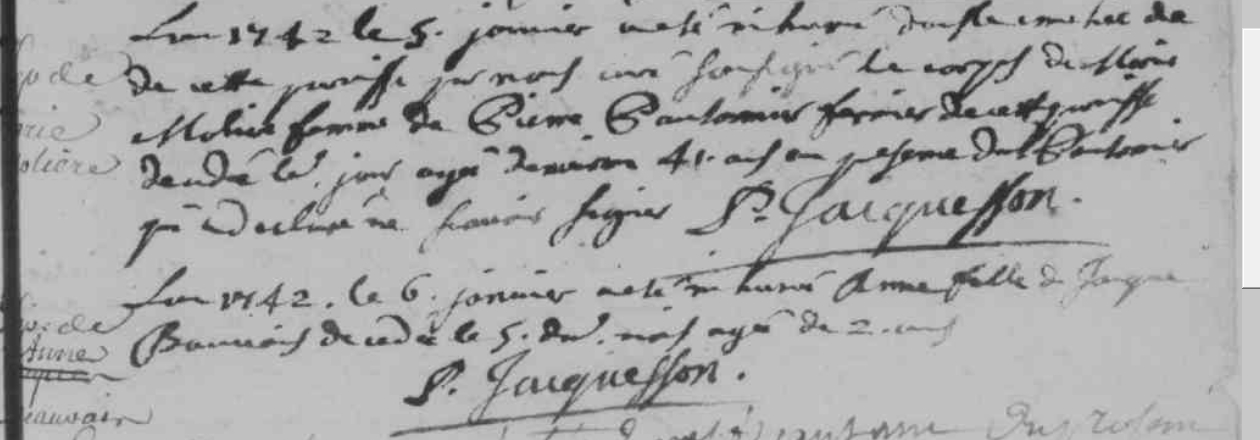 L'an 1742 le 5. janvier a eté inhumé dans le cimetiere de
de cette paroisse par nous curé soussigné le corps de Marie
Moliere femme de Pierre Pautonnier fermier de cette paroisse
decedée led. jour agée d'environ 41. ans en presence dud. Pautonnier
qui a declaré ne scavoir signer P. Jacquesson.
L'an 1742. le 6. janvier a eté inhumé Anne fille de Jacque
Bauvais decedée le 5. dud. mois agée de 2. ans
P. Jacquesson.
de
Molière
de
Anne
Beauvais